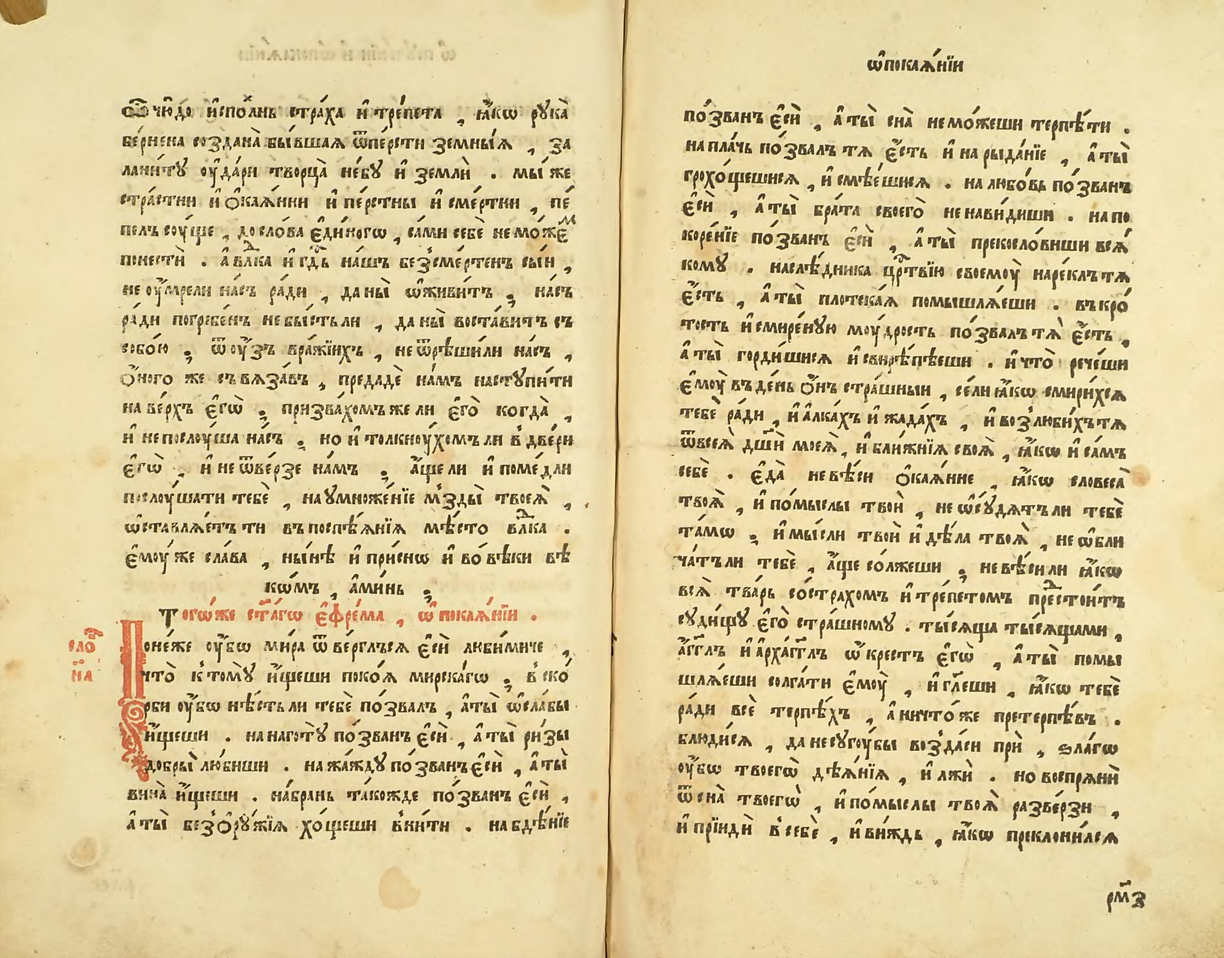 Ѿ чю́до и҆спо́лнь стра́ха и҆ тре́пета , ꙗ҆́кѡ рꙋка̀
бе́рнена созда́на̀ бы́вшаѧ ѿпе́рсти земны́ѧ , за
лани́тꙋ ᲂу҆да́ри творца̀ не́бꙋ и҆ землѝ . мы́ же
стра́стни и҆ ѻ҆каѧ́нни и҆ пе́рстны и҆ сме́ртни , пе́
пелъ сꙋ́ще , до сло́ва є҆ди́ногѡ , са́ми себѐ не мо́жеⷨ
понестѝ . а҆ влⷣка и҆ гдⷭ҇ь на́шъ без̾сме́ртенъ сы́и ,
не ᲂу҆́мре ли на́съ ра́ди , да ны̀ ѡ҆живи́тъ ; на́съ
ра́ди погребе́нъ не бы́сть ли , да ны̀ воста́витъ съ
собо́ю ; ѿ ᲂу҆́зъ вра́жїихъ , не ѿрѣши́ ли на́съ ,
ѻ҆́ного же съвѧза́въ , предадѐ на́мъ настꙋпи́ти
на ве́рхъ є҆гѡ̀ ; призва́хомъ же ли є҆го̀ когда̀ ,
и҆ не послꙋ́ша на́съ ; но и҆ толкнꙋ́хомъ ли в̾ две́ри
є҆гѡ̀ , и҆ не ѿве́рзе на́мъ ; а҆́ще ли и҆ поме́дли
послꙋ́шати тебѐ , на ᲂумноже́нїе мз̾ды̀ твоеѧ̀ ,
ѡ҆ставлѧ́етъ ти въ поспѣѧ́нїѧ мѣ́сто влⷣка .
є҆мꙋ́ же сла́ва , ны́нѣ и҆ при́снѡ и҆ во вѣ́ки вѣ
кѡ́мъ , а҆ми́нь ;
Тогѡ́же ст҃а́гѡ є҆фре́ма , ѡ҆ покаѧ́нїи .
сло́ⷡ
н҃а
Поне́же ᲂу҆́бѡ ми́ра ѿве́рглъсѧ є҆сѝ люби́миче ,
что̀ к̾ томꙋ̀ и҆́щеши поко́ѧ мирска́гѡ ; в̾ ско́
рби ᲂу҆́бѡ нѣ́сть ли тебѐ позва́лъ , а҆ ты̀ ѡ҆сла́бы
и҆́щеши . на наготꙋ̀ по́званъ є҆сѝ , а҆ ты̀ ри́зы
до́бры лю́биши . на жа́ждꙋ по́званъ є҆сѝ , а҆ ты̀
вина̀ и҆́щеши . на́ брань тако́жде по́званъ є҆сѝ ,
а҆ ты̀ без̾ѻ҆рꙋ́жїѧ хо́щеши вни́ти . на бдѣ́нїе
ѡ҆ покаѧ́нїи
по́званъ є҆сѝ , а҆ ты̀ сна̀ не мо́жеши терпѣ́ти .
на пла́чь позва́лъ тѧ є҆́сть и҆ на рыда́нїе , а҆ ты̀
грохо́щешисѧ , и҆ смѣе́шисѧ . на любо́вь по́званъ
є҆сѝ , а҆ ты̀ бра́та своего̀ ненави́диши . на по
коре́нїе по́званъ є҆сѝ , а҆ ты̀ прекосло́виши всѧ́
комꙋ . наслѣ́дника црⷭ҇твїю своемꙋ̀ наре́клъ тѧ
є҆́сть , а҆ ты̀ плотска́ѧ помышлѧ́еши . въ кро́
тость и҆ смире́нꙋю мꙋ́дрость позва́лъ тѧ̀ є҆́сть ,
а҆ ты̀ горди́шисѧ и҆ свирѣпѣ́еши . и҆ что̀ рече́ши
є҆мꙋ̀ въ де́нь ѻ҆́нъ стра́шныи , се́ ли ꙗ҆́кѡ смири́хсѧ
тебѐ ра́ди , и҆ а҆лка́хъ и҆ жада́хъ , и҆ возлюби́хъ тѧ
ѿ всеѧ̀ дш҃и́ моеѧ̀ , и҆ бли́жнїѧ своѧ̀ , ꙗ҆́кѡ и҆ са́мъ
себѐ . є҆да̀ не вѣ́си ѻ҆каѧ́нне , ꙗ҆́кѡ словеса̀
твоѧ̀ , и҆ по́мыслы твоѝ , не ѡ҆сꙋ́дѧтъ ли тебѐ
та́мѡ ; и҆ мы́сли твоѝ и҆ дѣ́ла твоѧ̀ , не ѡ҆бли
ча́тъ ли тебѐ , а҆́ще со́лжеши ; не вѣ́си ли ꙗ҆́кѡ
всѧ̀ тва́рь со стра́хомъ и҆ тре́петомъ прⷣестои́тъ
сꙋди́щꙋ є҆го̀ стра́шномꙋ . ты́сѧща ты́сѧщами ,
а҆́гг҃лъ и҆ а҆рха́гг҃лъ ѡ҆́крестъ є҆гѡ̀ , а҆ ты̀ помы
шлѧ́еши солга́ти є҆мꙋ̀ , и҆ гл҃еши , ꙗ҆́кѡ тебѐ
ра́ди всѐ терпѣ́хъ , а҆ ничто́же претерпѣ́въ .
блюди́сѧ , да не сꙋгꙋ́бы возда́си прѝ , ѕла́гѡ
ᲂу҆́бѡ твоегѡ̀ дѣѧ́нїѧ , и҆ лжѝ . но воспрѧнѝ
ѿ сна̀ твоегѡ̀ , и҆ по́мыслы твоѧ̀ разве́рзи ,
и҆ прїидѝ в̾ себѐ , и҆ ви́ждь , ꙗ҆́кѡ приклони́лсѧ
рм҃з